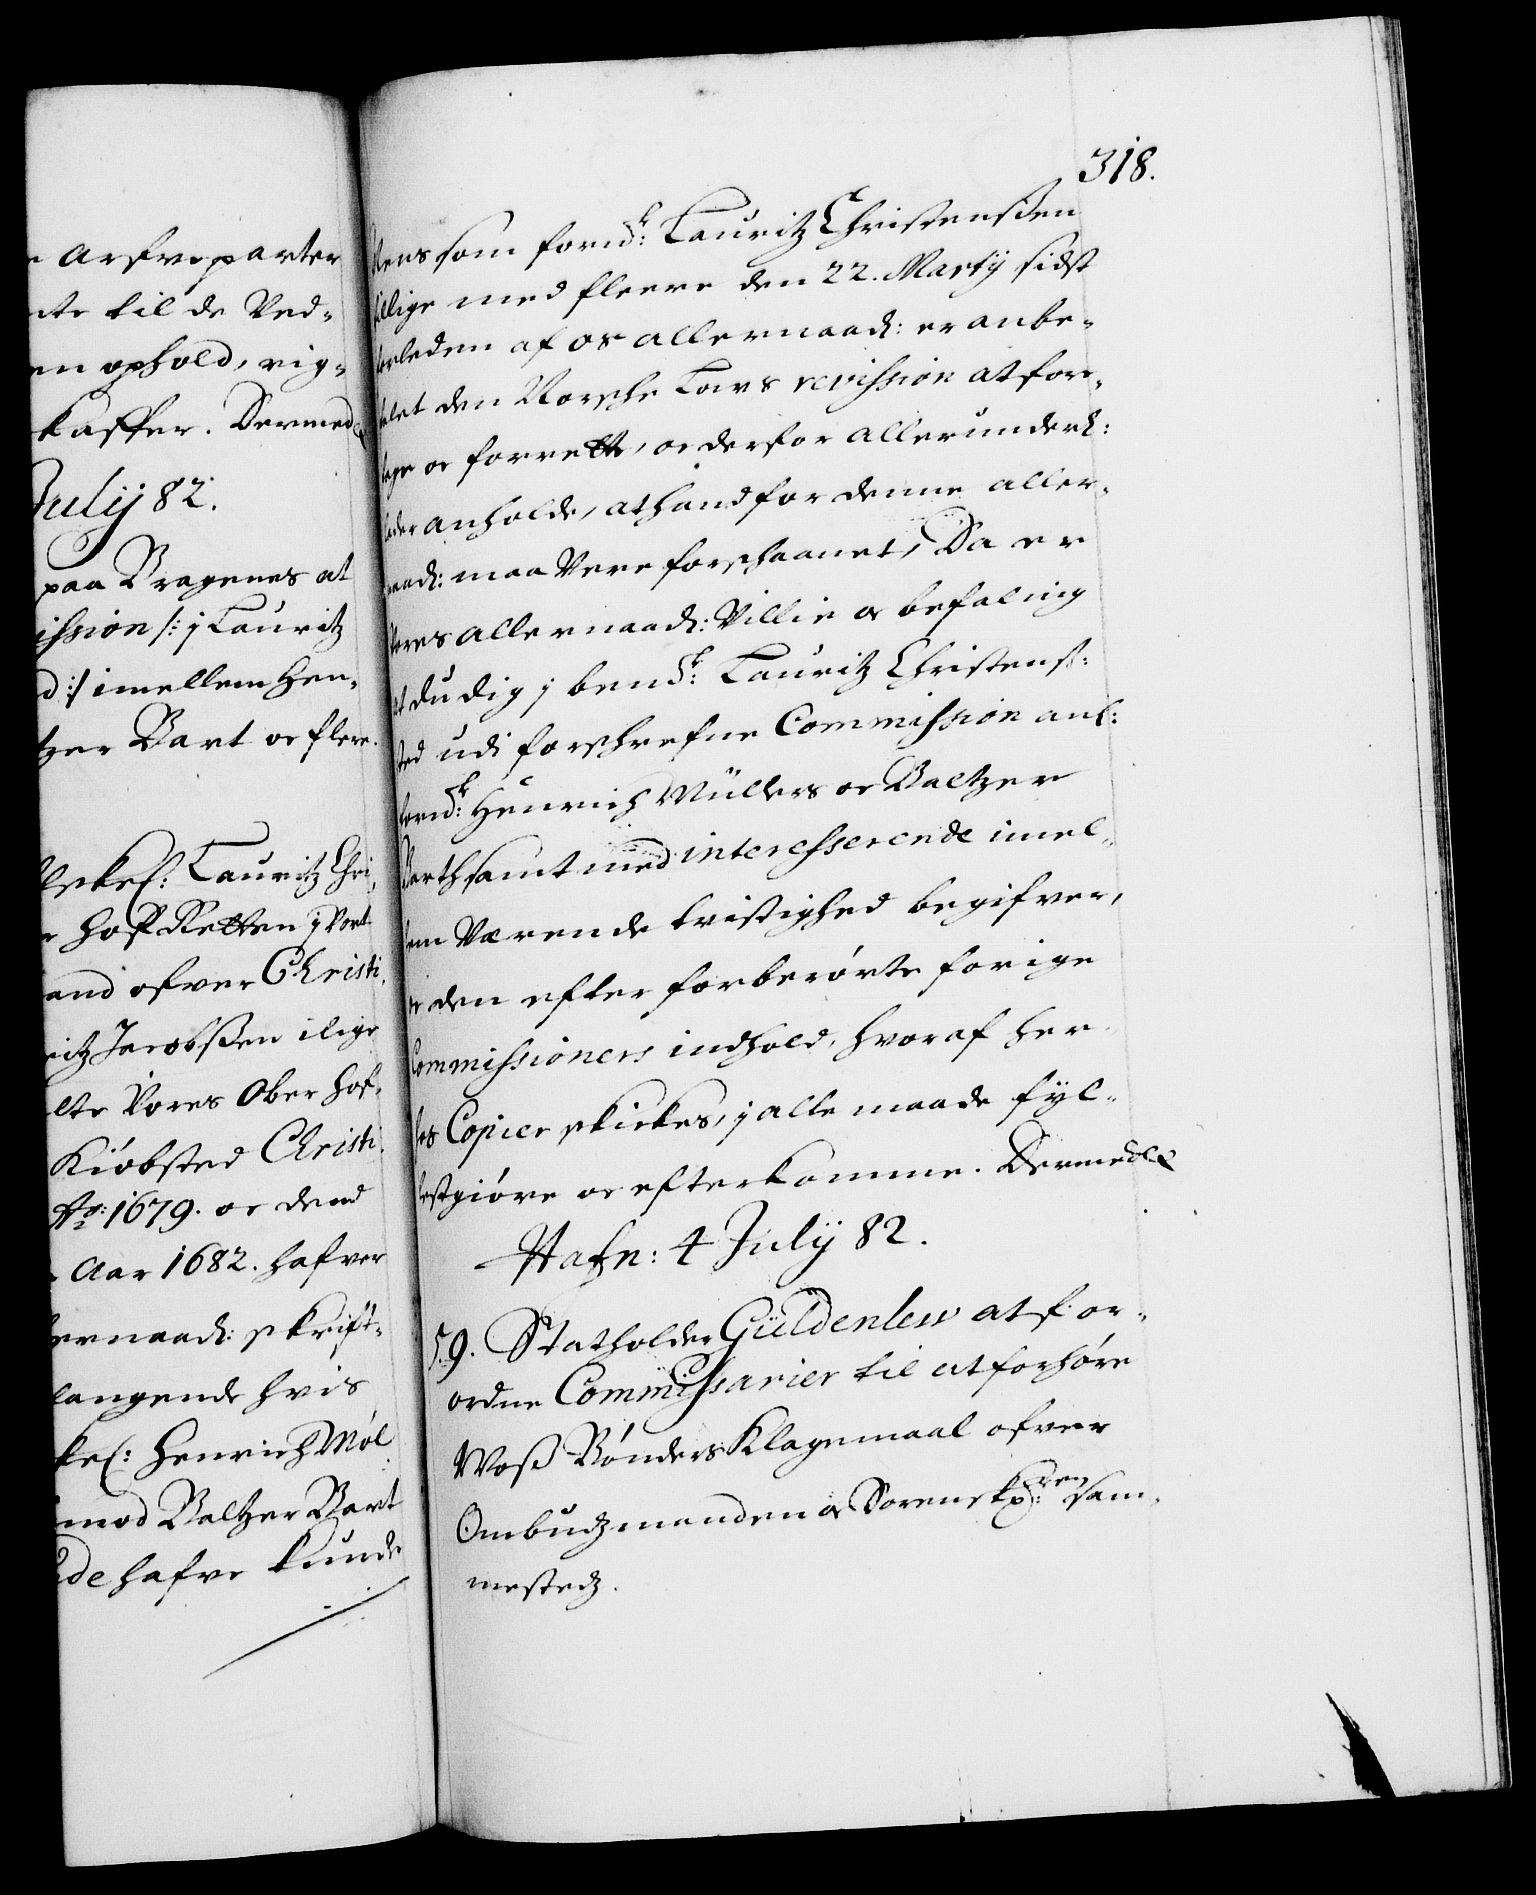 arfveparter
til de Ved-
ophold, rig-
skaffer. Dermed
July 82.
paa Bragenes at
ission /: j Lauritz
:/ imellem Hen-
tzer Bart oc flere.
Lauritz Chri-
Hof Retten j Vort
and ofver Christi-
ritz Jacobssen ilige
Vores Ober Hof-
Kiøbsted Christi-
Ao: 1679. oc dend
Aar 1682. hafver
ernaad: skrift-
langende hvis
Henrich Møl-
mod Baltzer Bart
hafve kunde
318.
som fornd: Lauritz Christenssen
tillige med fleere den 22. Martij sidst
forleden af os allernaad: er anbe-
falet den Norsche Lovs revission at fore-
tage oc forrette, oc derfor allerunderd:
lader anholde, at hand for denne aller-
naad: maa Vere forschaanet, Da er
Vores allernaad: Villie oc befaling
at du dig j bemd: Lauritz Christenss:
sted udi forschrefne Commission anl:
fornd: Henrich Müllers oc Baltzer
Barth samt med interesserende imel-
lem Værende tvistighed begifver,
oc den efter forberørte forige
Commissioners indhold, hvoraf her-
hos Copier skickes, j alle maade fyl-
lestgiøre oc efterkomme. Dermed &
Hafn: 4 July 82.
59. Statholder Güldenlew at for-
ordne Commissarier til at forhøre
Woss Bønders Klagemaal ofver
Ombudzmanden oc Sorenskr: sam-
mestedz.